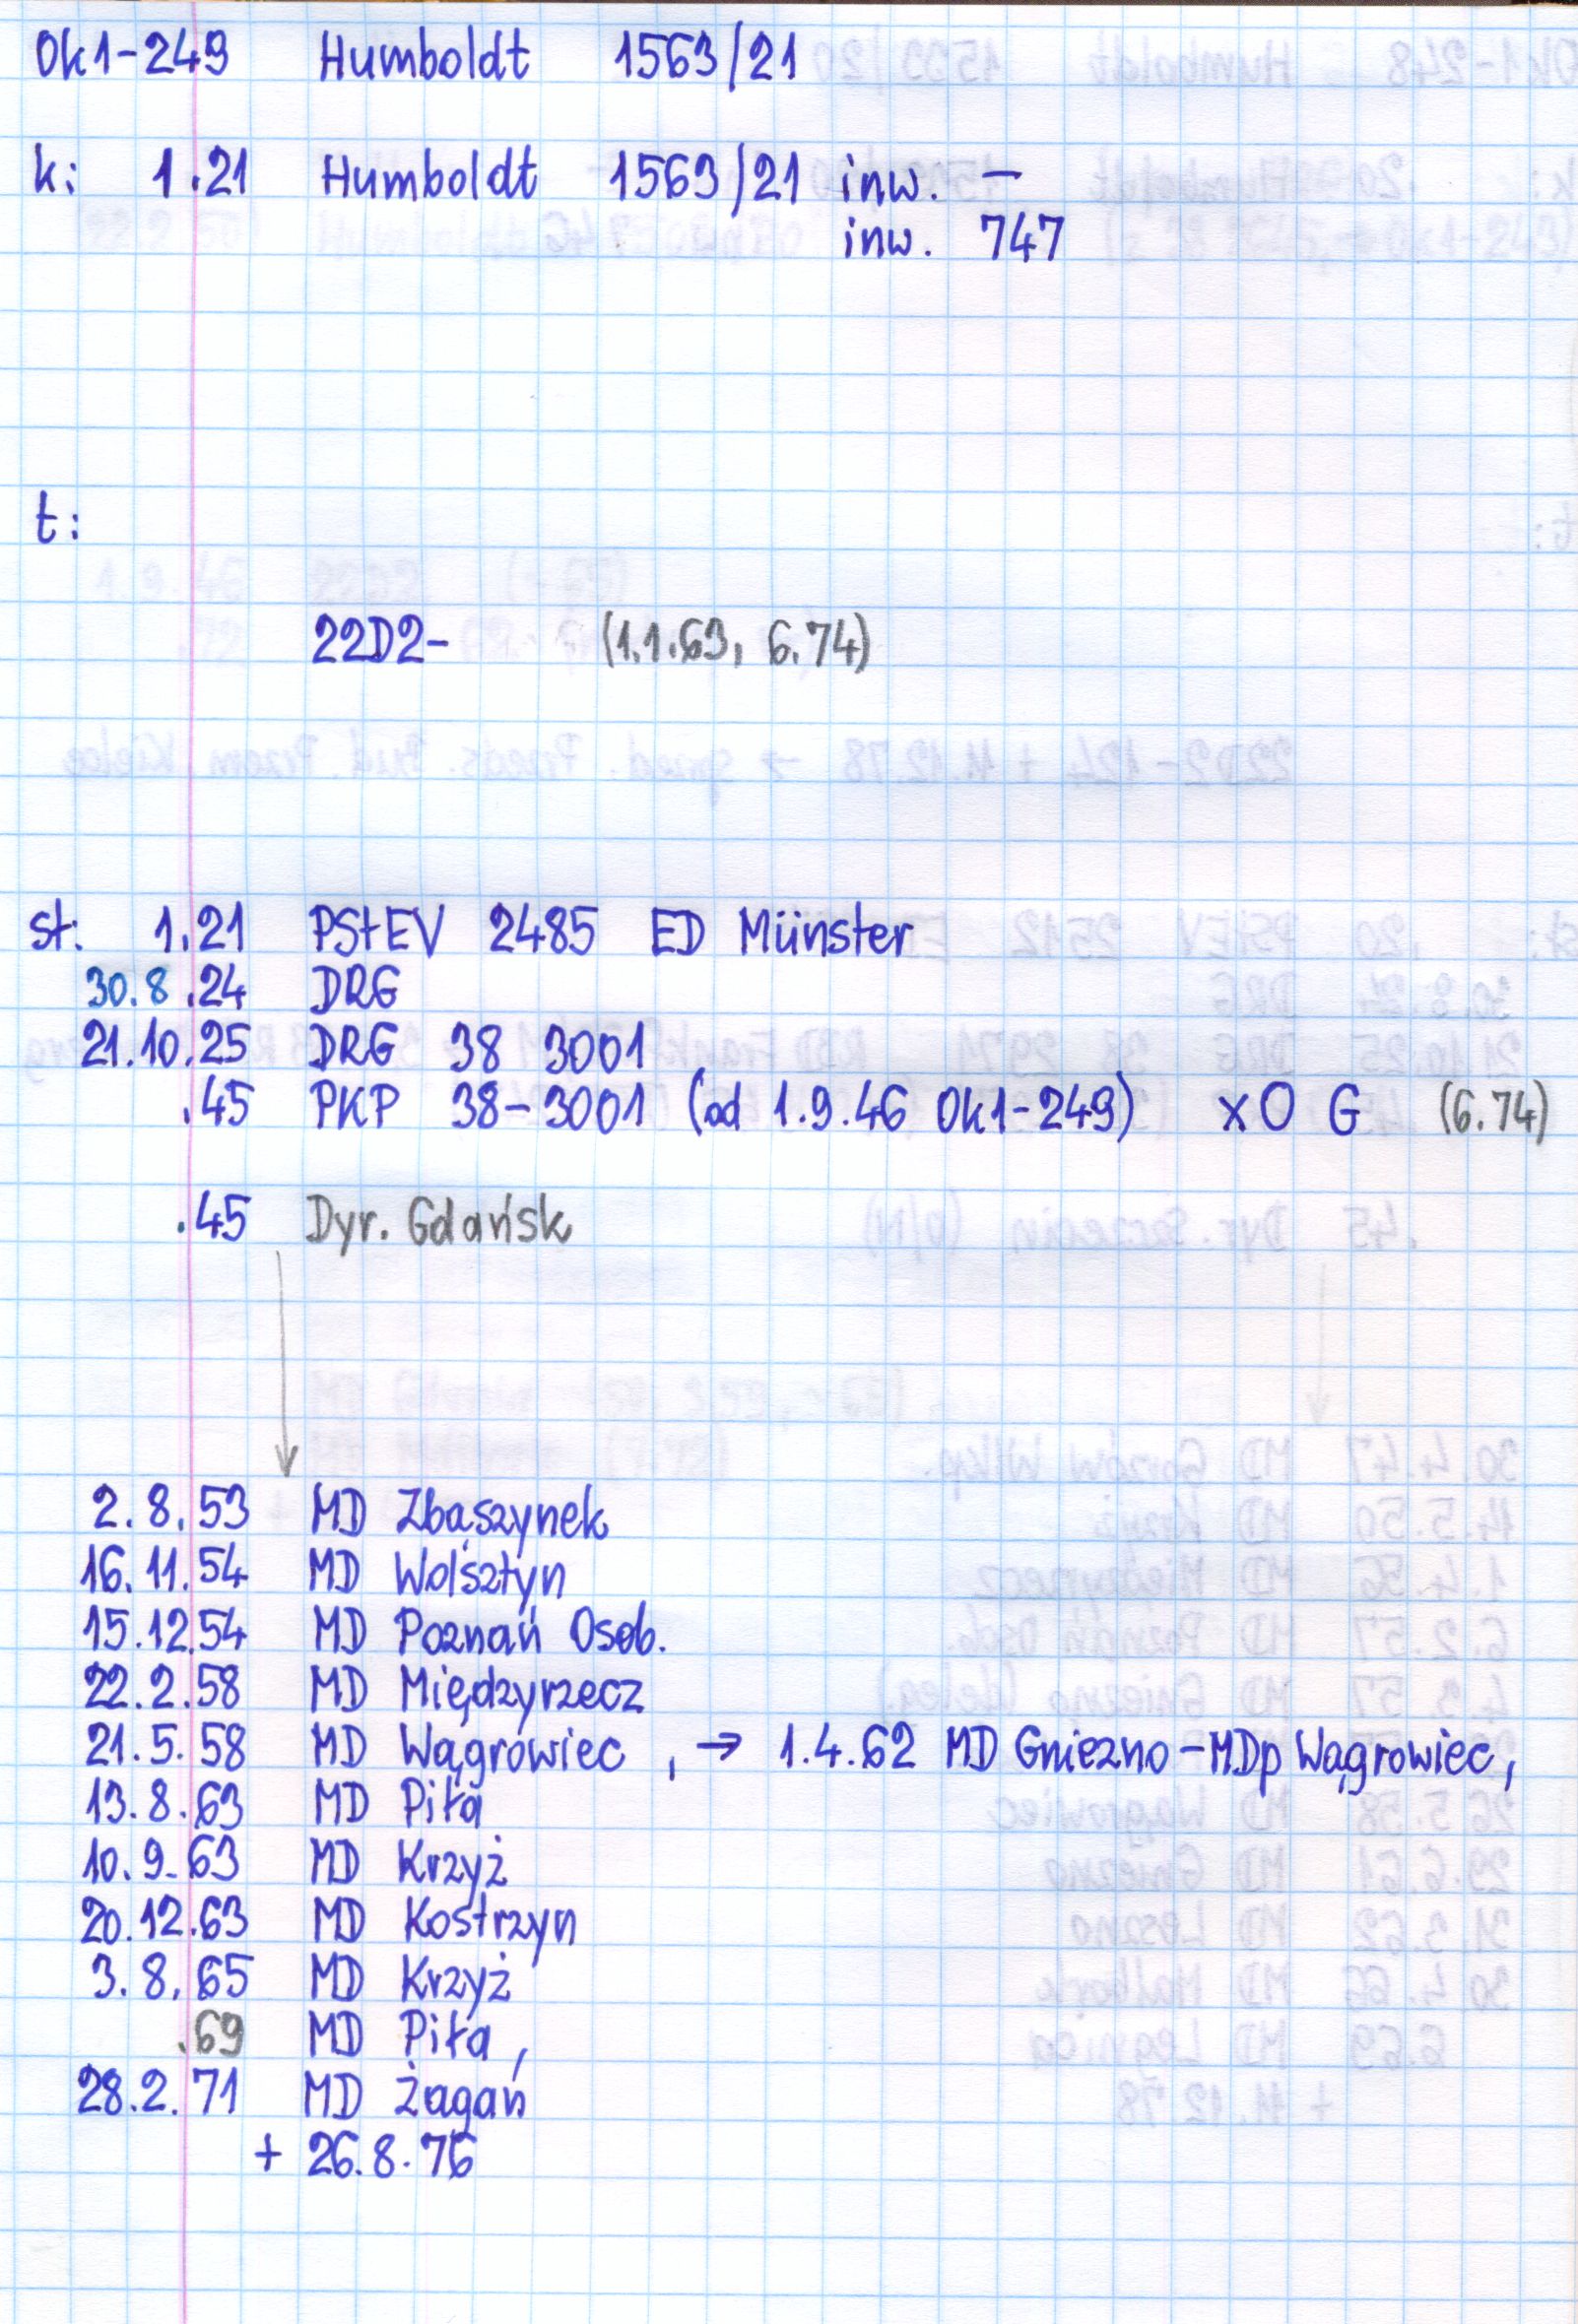 Ok1-249 Humboldt 1563/21
k: 1.21 Humboldt 1563/21 inw. —
inw. 747
t:
22D2- (1.1.63, 6.74)
st: 1.21 PStEV 2485 ED Münster
30.8.24 DRG
21.10.25 DRG 38 3001
.45 PKP 38-3001 (od 1.9.46 Ok1-249) xO G (6.74)
.45 Dyr. Gdańsk
2.8.53 MD Zbąszynek
16.11.54 MD Wolsztyn
15.12.54 MD Poznań Osob.
22.2.58 MD Międzyrzecz
21.5.58 MD Wągrowiec , → 1.4.62 MD Gniezno-MDp Wągrowiec,
13.8.63 MD Piła
10.9.63 MD Krzyż
20.12.63 MD Kostrzyn
3.8.65 MD Krzyż
.69 MD Piła ,
28.2.71 MD Żagań
+ 26.8.76